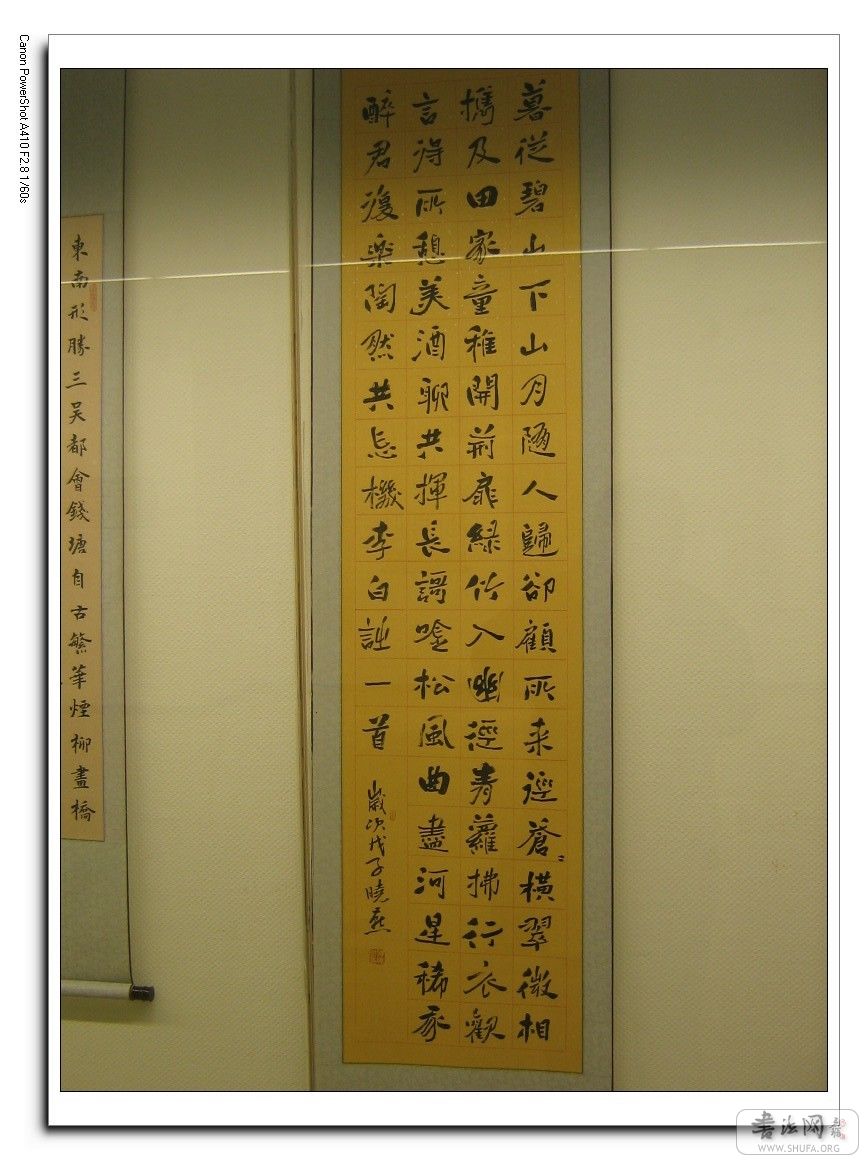 Canon PowerShot A410 F2.8 1/60s
暮從碧山下山月随人歸卻顧所来逕蒼〻橫翠微相
攜及田家童稚開荊扉緑竹入幽逕青蘿拂行衣觀
言得所憩美酒聊共揮長謌唫松風曲盡河星稀我
醉君復樂陶然共忘機李白詩一首
歲次戊子曉燕
東南形勝三吴都會錢塘自古繁華煙柳畫橋
书法网
WWW.SHUFA.ORG